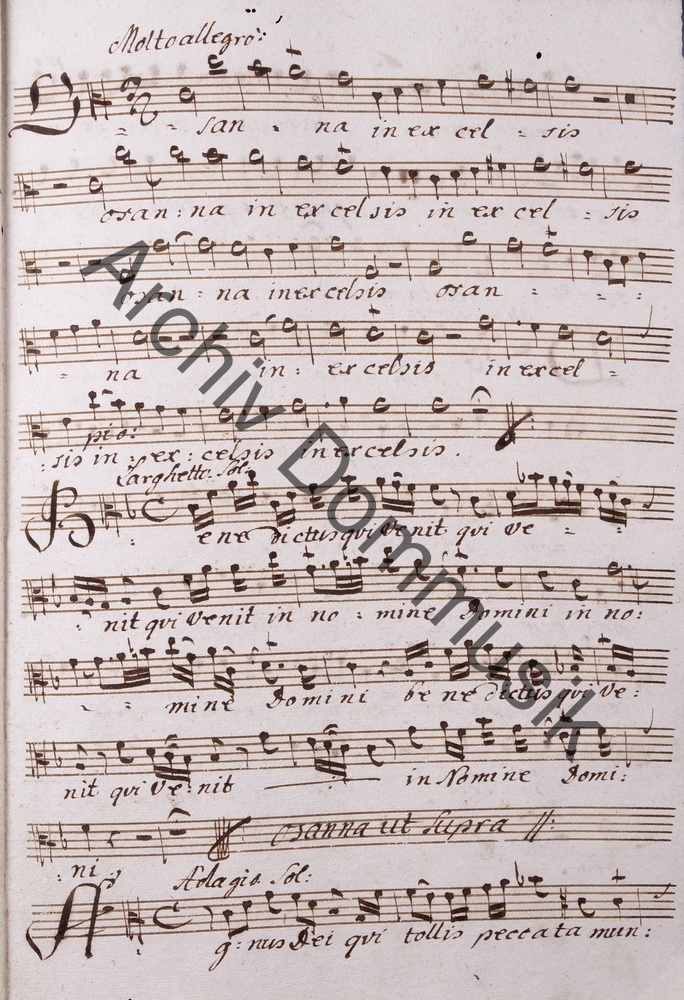 Molto allegro:
O - - san - na in ex cel - sis
osan: na in ex celsis in ex cel - sis
osan - na in excelsis osan - - -
- na in: ex celsis in excel -
pio:
: sis in - ex: celsis in excelsis.
Larghetto Sol:
B : ene dictus qvi venit qvi ve - - -
- nit qvi venit in no - mine Domini in no:
- - mine Domini be ne dictus qvi ve:
nit qvi Ve: nit in Nomine Domi:
: ni osanna ut Supra //:
Adagio Sol:
A : g: nus Dei qvi tollis peccata mun:
Archiv Dommusik